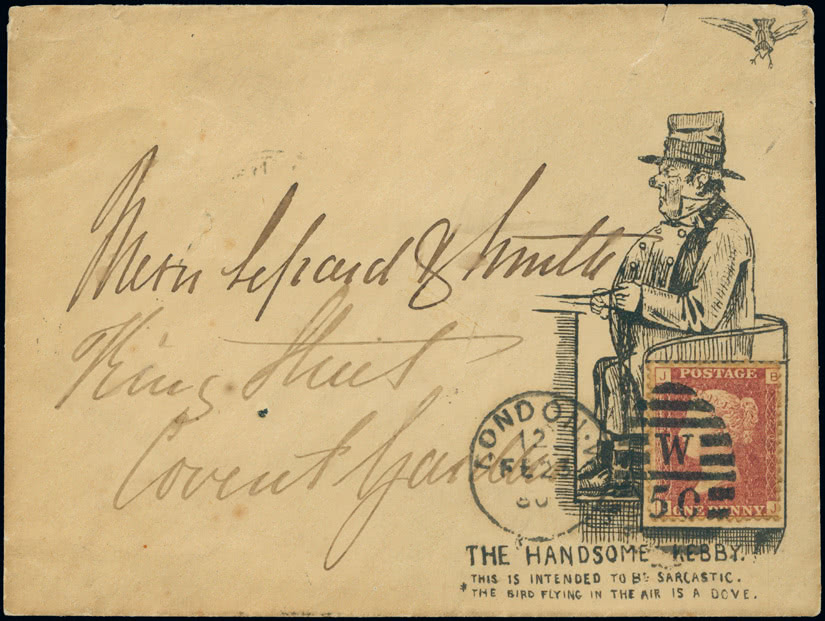 Messrs Lepard & Smith
King Street
Covent Garden
POSTAGE
LONDON·W
12
FE
80
W
50
ONE PENNY
THE HANDSOME KEBBY.
THIS IS INTENDED TO BE SARCASTIC.
THE BIRD FLYING IN THE AIR IS A DOVE.